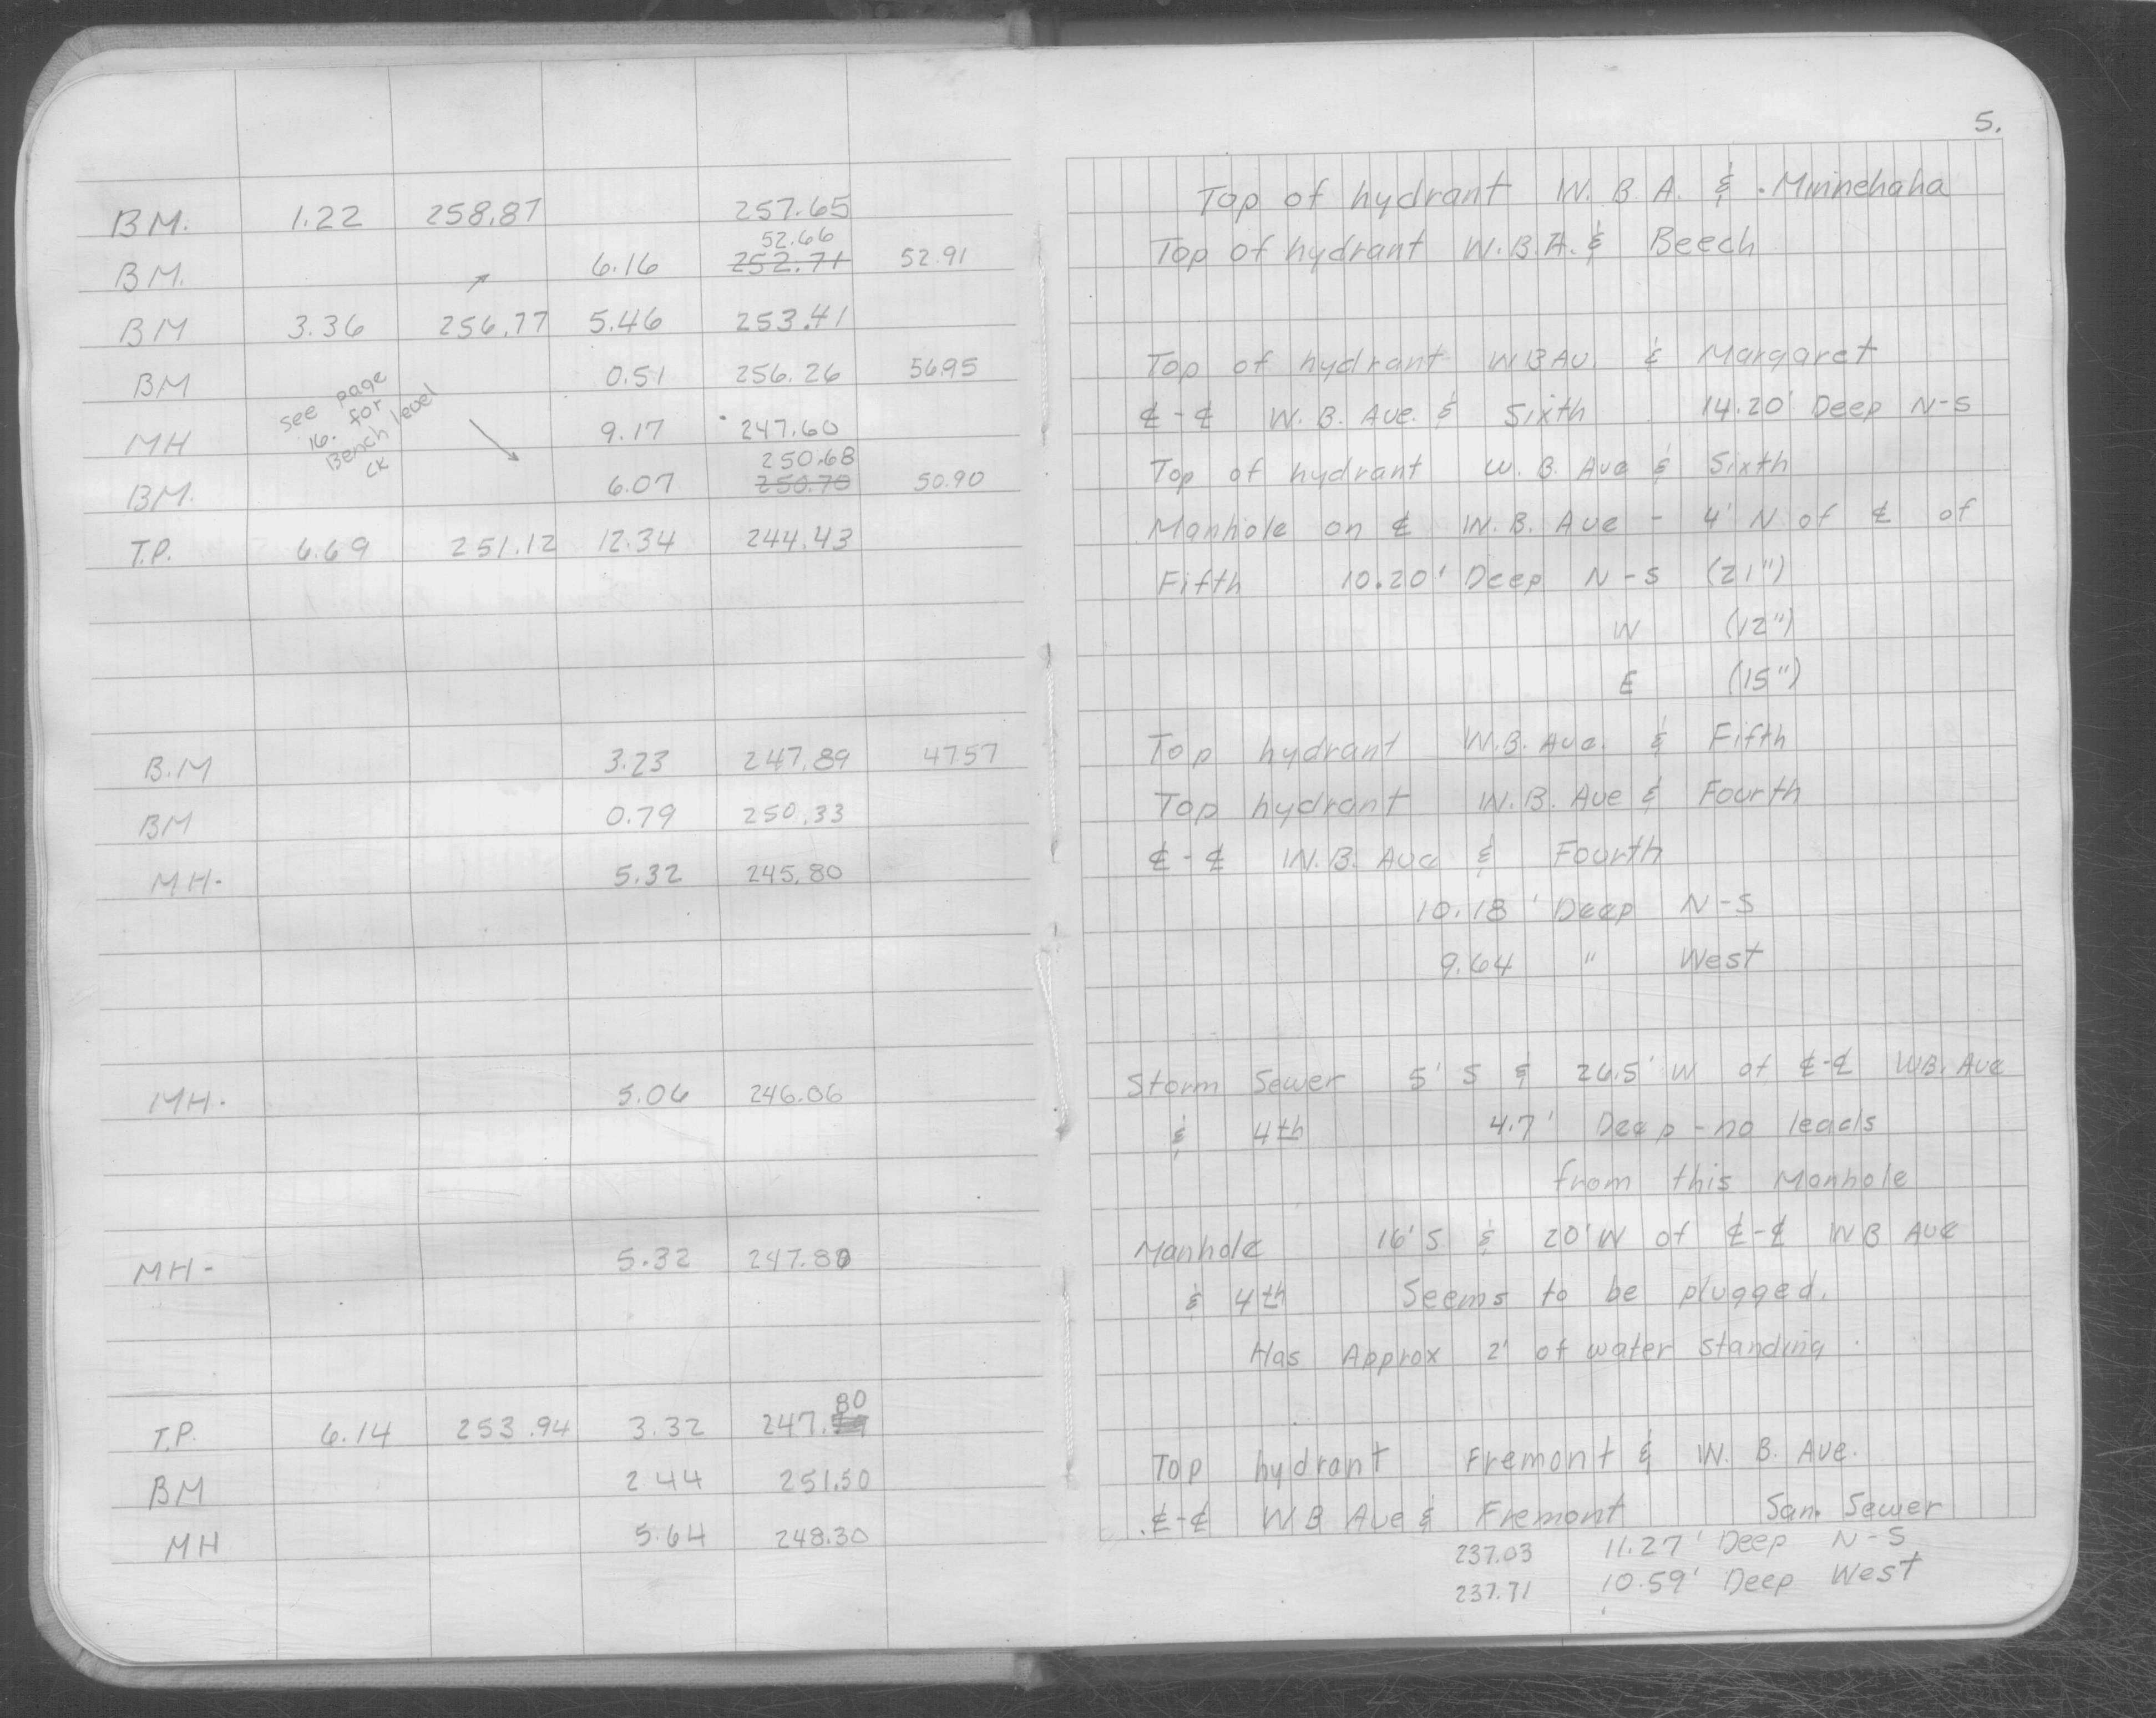 BM. 1.22 258.87 257.65
52.66
BM. 6.16 252.71 52.91
BM 3.36 256.77 5.46 253.41
BM 0.51 256.26 56.95
See page
16. for
Bench level
CK
MH 9.17 247.60
250.68
BM. 6.07 250.70 50.90
T.P. 6.69 251.12 12.34 244.43
B.M 3.23 247.89 47.57
BM 0.79 250.33
MH- 5.32 245.80
MH- 5.06 246.06
MH- 5.32 247.80
80
T.P. 6.14 253.94 3.32 247.
BM 2.44 251.50
MH 5.64 248.30
5.
Top of hydrant W. B. A. & Minnehaha
Top of hydrant W.B.A. & Beech
Top of hydrant W B AV. & Margaret
℄-℄ W. B. Ave. & Sixth 14.20' Deep N-S
Top of hydrant W. B. Ave & Sixth
Manhole on ℄ W. B. Ave - 4' N of ℄ of
Fifth 10.20' Deep N-S (21")
W (12")
E (15")
Top hydrant W.B. Ave. & Fifth
Top hydrant W. B. Ave & Fourth
℄-℄ W. B. Ave & Fourth
10.18' Deep N-S
9.64 " West
Storm Sewer 5' S & 26.5' W of ℄-℄ WB. Ave
& 4th 4.7' Deep - no leads
from this Manhole
Manhole 16' S & 20' W of ℄-℄ W B Ave
& 4th Seems to be plugged.
Has Approx 2' of water standing.
Top hydrant Fremont & W. B. Ave.
℄-℄ W B Ave & Fremont San. Sewer
237.03 11.27' Deep N-S
237.71 10.59' Deep West